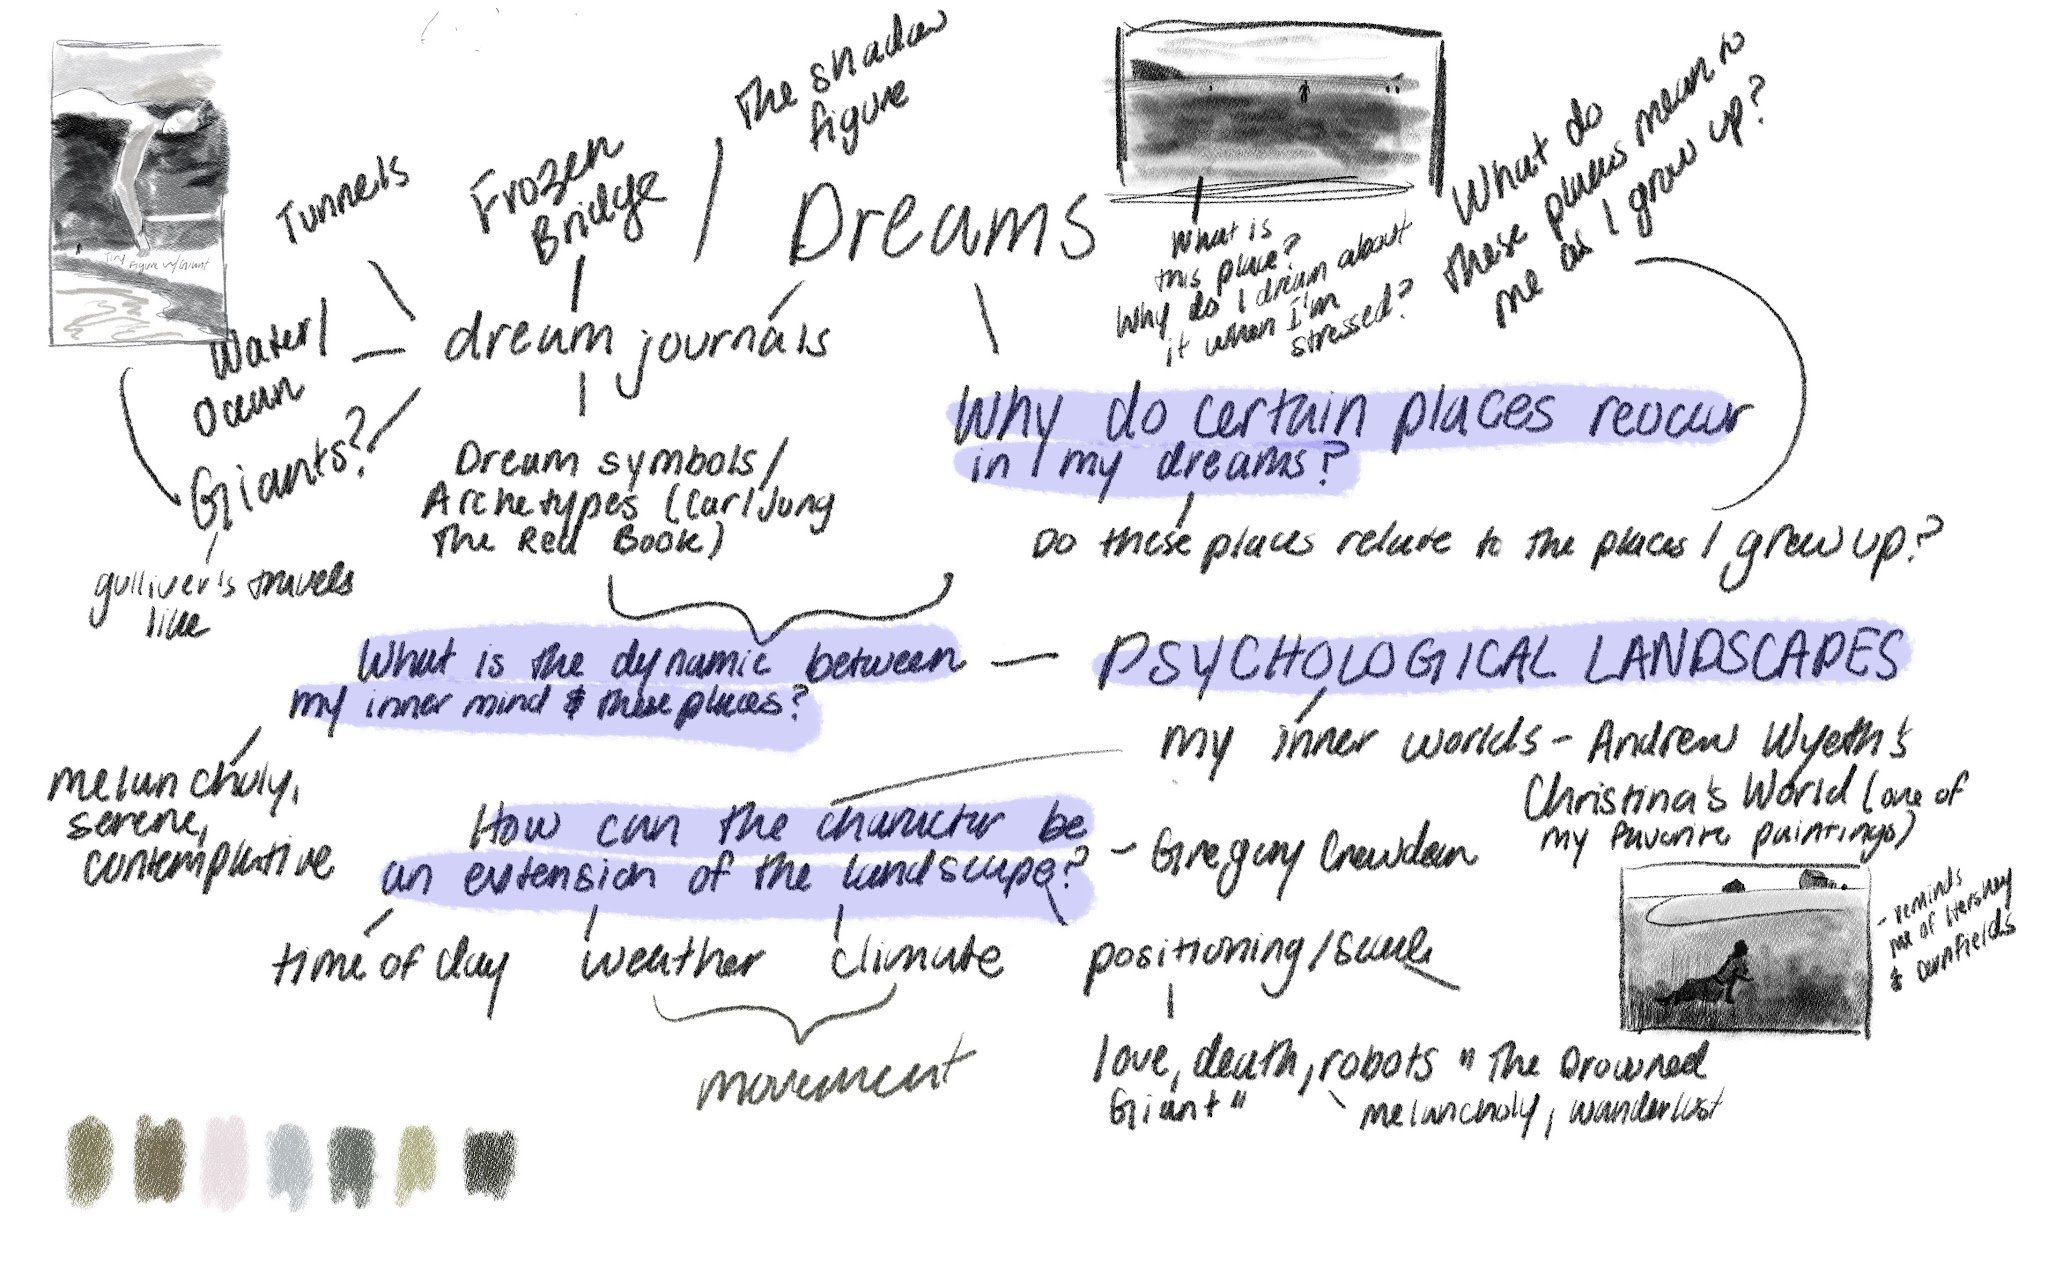 Tiny
Figure w/Giant
Tunnels
Frozen
Bridge
The shadow
figure
Dreams
What is
this place?
Why do I dream about
it when I'm
stressed?
What do
these places mean to
me as I grow up?
Water/
Ocean
Giants?
gulliver's travels
like
dream journals
Dream symbols/
Archetypes (Carl Jung
The Red Book)
Why do certain places reoccur
in my dreams?
Do these places relate to the places I grew up?
What is the dynamic between
my inner mind & these places?
PSYCHOLOGICAL LANDSCAPES
my inner worlds - Andrew Wyeth's
Christina's World (one of
my favorite paintings)
- reminds
me of Hershey
& cornfields
melancholy,
serene,
contemplative
How can the character be
an extension of the landscape?
- Gregory Crewdson
time of day
weather
climate
positioning/scale
movement
love, death, robots "The Drowned
Giant"
melancholy, wanderlust